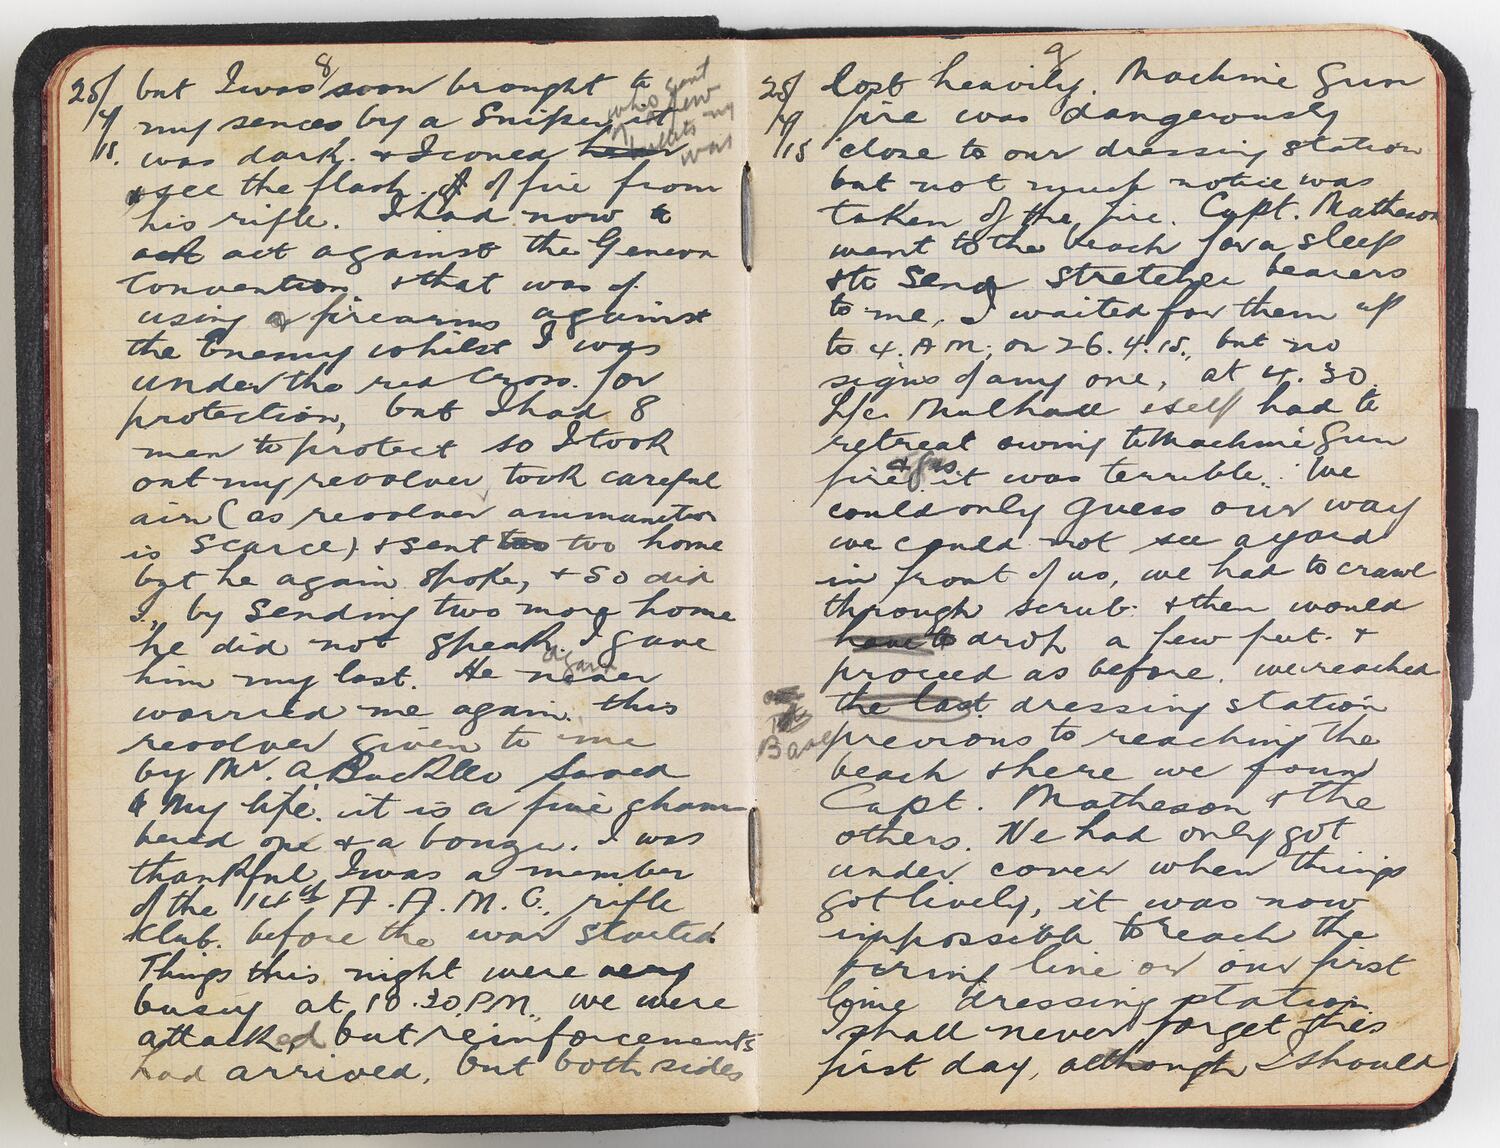 8
25/4/15. but I was soon brought to
my sences by a Sniper, it
who sent
a few
bullets my
way
was dark. & I coned hear
& see the flash. of fire from
his rifle. I had now to
act act against the Geneva
Convention & that was of
using a firearms against
the Enemy whilst I was
under the red Cross. for
protection, but I had 8
men to protect so I took
out my revolver took careful
aim (as revolver ammunition
is scarce) & sent two two home
byt he again spoke, & so did
I, by sending two more home
he did not speak. I gave
again
him my last. He never
worried me again. this
revolver given to me
by Mr. A Buckle saved
my life. it is a fine cham-
bered one & a bonzer. I was
thankful, I was a member
of the 14th A.A.M.C., rifle
Club. before the war started
Things this night were very
busy at 10.30.P.M., we were
attacked but reinforcements
had arrived, but both sides
9
25/4/15 lost heavily. Machine Gun
fire was dangerously
close to our dressing station
but not much notice was
taken of the fire. Capt. Matheson
went to the beach for a sleep
& to send stretcher bearers
to me, I waited for them up
to 4. A.M; on 26.4.15., but no
signs of any one, at 4.30
L/c. Mulhall & self had to
retreat owing to Machine Gun
fire. it was terrible. We
could only guess our way
we could not see a yard
in front of us, we had to crawl
through scrub. & then would
have to drop a few feet. &
proceed as before. we reached
the last dressing station
Base
previous to reaching the
beach & here we found
Capt. Matheson & the
others. We had only got
under cover when things
got lively, it was now
impossible to reach the
firing line or our first
line dressing station
I shall never forget this
first day, although I should